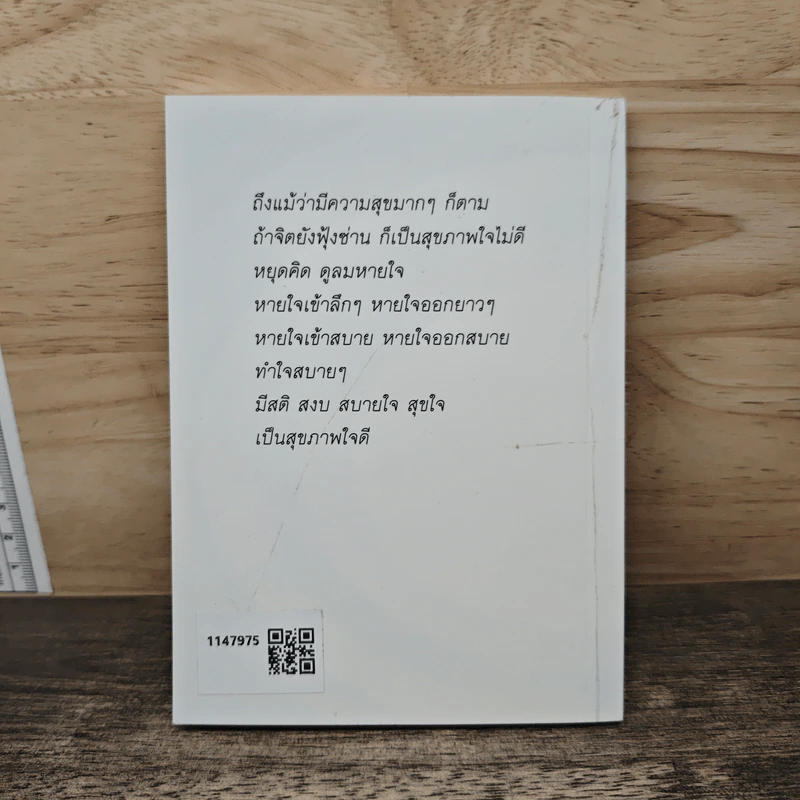 ถึงแม้ว่ามีความสุขมากๆ ก็ตาม
ถ้าจิตยังฟุ้งซ่าน ก็เป็นสุขภาพใจไม่ดี
หยุดคิด ดูลมหายใจ
หายใจเข้าลึกๆ หายใจออกยาวๆ
หายใจเข้าสบาย หายใจออกสบาย
ทำใจสบายๆ
มีสติ สงบ สบายใจ สุขใจ
เป็นสุขภาพใจดี
1147975
3
2
1